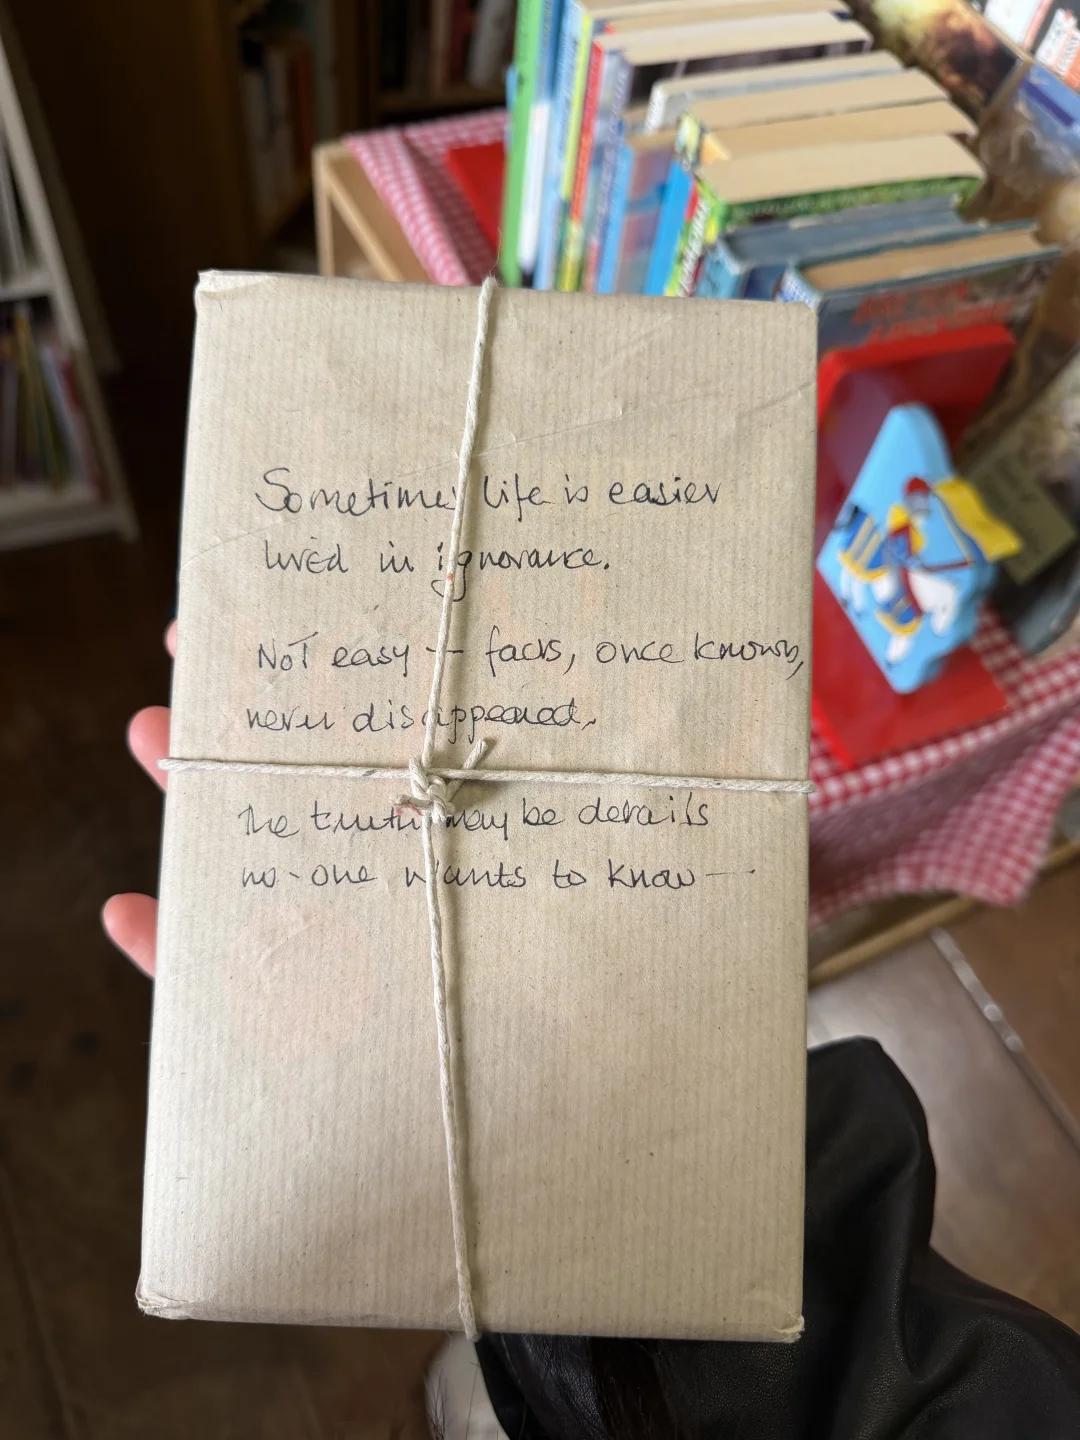 Sometimes life is easier
lived in ignorance.
Not easy — facts, once known,
never disappeared.
The truth may be details
no-one wants to know —